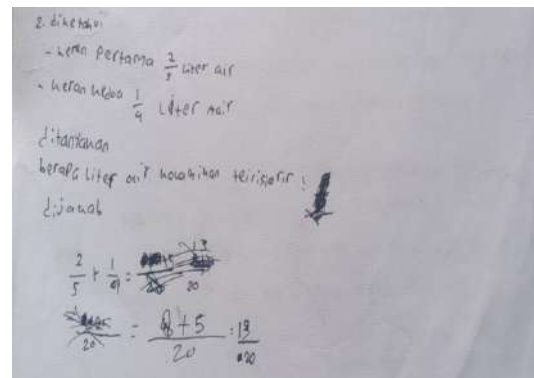 2. diketahui
- keran Pertama 2/5 Liter air
- keran kedua 1/4 Liter air
ditanyakan
berapa Liter air kolam ikan terisi
dijawab
2/5 + 1/4 = 13/20
= 8+5/20 = 13/20